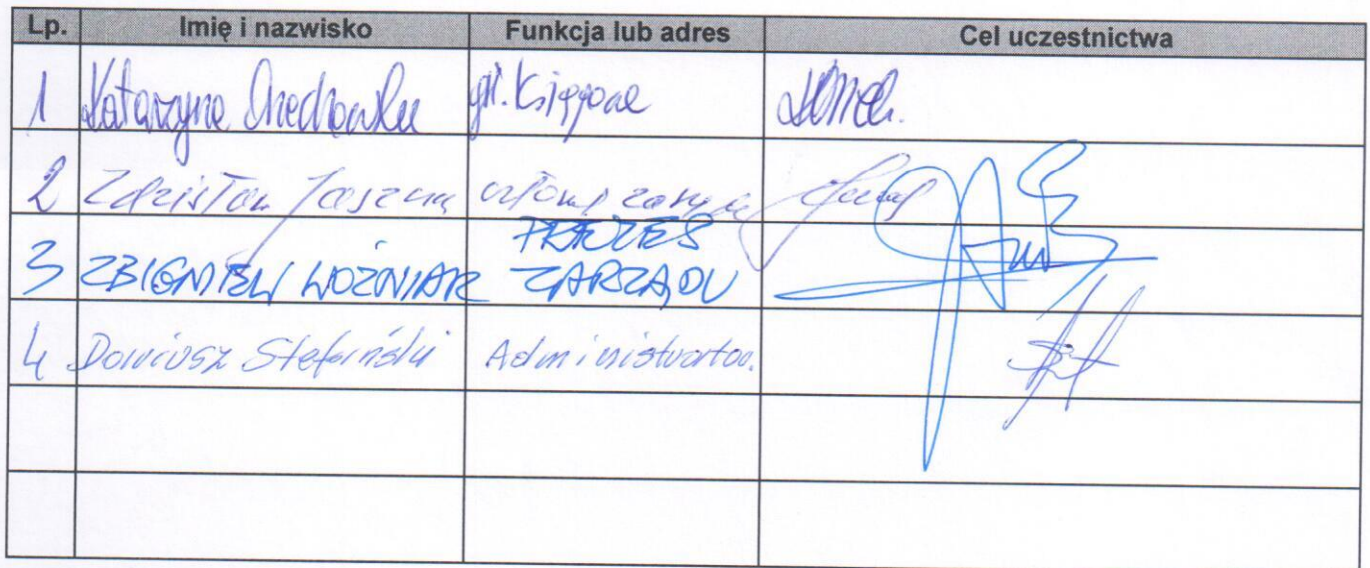 Lp. Imię i nazwisko Funkcja lub adres Cel uczestnictwa
1 Katarzyna gł. Księgowa
2 Zdzisław członek zarządu
PREZES
3 ZBIGNIEW WOŹNIAK ZARZĄDU
4 Dariusz Stefański Administrator.